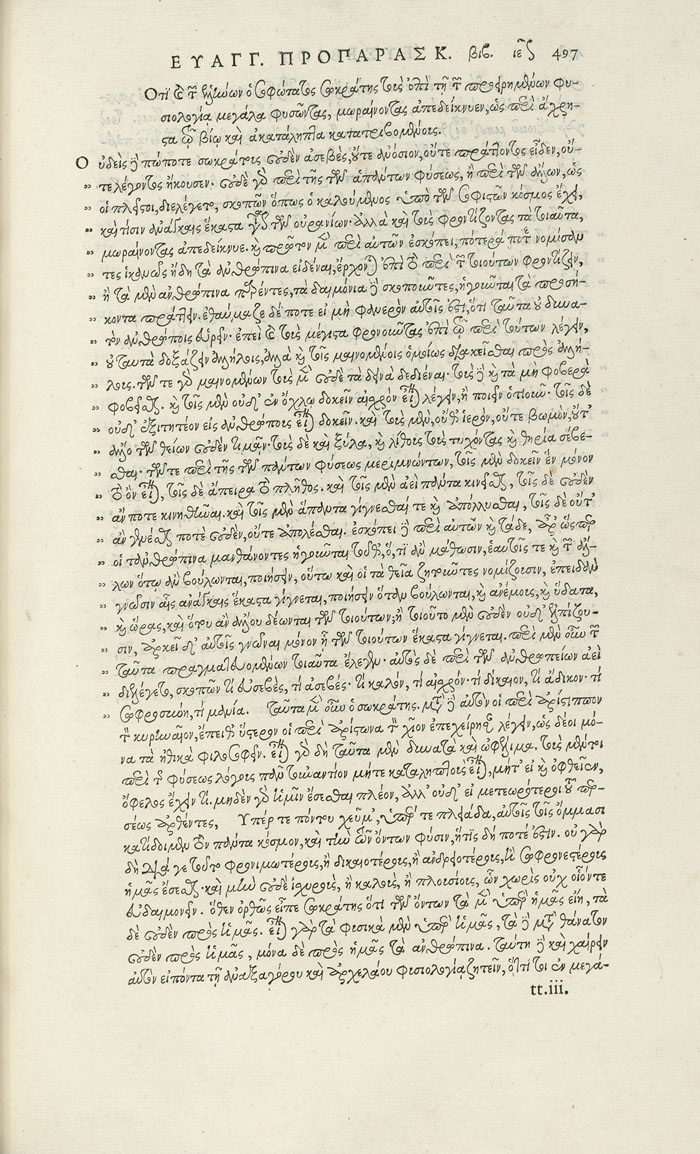 ΕΥΑΓΓ. ΠΡΟΠΑΡΑΣΚ. βιβ. ιε 497
Οτι καὶ τῶν ἑλλήνων ὁ σοφώτατος σωκράτης τοὺς ἐπὶ τῇ τῶν προειρημένων φυ-
σιολογίᾳ μεγάλα φυσῶντας, μωραίνοντας ἀπεδείκνυεν, ὡς περὶ ἄχρη-
στα τῷ βίῳ καὶ ἀκατάληπτα κατατριβομένους.
Ουδεὶς δὲ πώποτε σωκράτους οὐδὲν ἀσεβὲς, οὔτε ἀνόσιον, οὔτε πράττοντος εἶδεν, οὔ-
τε λέγοντος ἤκουσεν· οὐδὲ γὰρ περὶ τῆς τῶν ἁπάντων φύσεως, ἢ περὶ τῶν ἄλλων, ὡς
οἱ πλεῖστοι, διελέγετο, σκοπῶν ὅπως ὁ καλούμενος ὑπὸ τῶν σοφιστῶν κόσμος ἔχει,
καὶ τίσιν ἀνάγκαις ἕκαστα γίνεται τῶν οὐρανίων· ἀλλὰ καὶ τοὺς φροντίζοντας τὰ τοιαῦτα,
μωραίνοντας ἀπεδείκνυε. καὶ πρῶτον μὲν περὶ αὐτῶν ἐσκόπει, πότερά ποτε νομίσαν
τες ἱκανῶς ἤδη τὰ ἀνθρώπινα εἰδέναι, ἔρχονται ἐπὶ τὸ περὶ τῶν τοιούτων φροντίζειν,
ἢ τὰ μὲν ἀνθρώπινα παρέντες, τὰ δαιμόνια δὲ σκοποῦντες, ἡγοῦνται τὰ προσή-
κοντα πράττειν. ἐθαύμαζε δέ ποτε εἰ μὴ φανερὸν αὐτοῖς ἐστι, ὅτι ταῦτα οὐ δυνα-
τὸν ἀνθρώποις εὑρεῖν· ἐπεὶ καὶ τοὺς μέγιστα φρονοῦντας ἐπὶ τῷ περὶ τούτων λέγειν,
οὐ ταυτὰ δοξάζειν ἀλλήλοις, ἀλλὰ καὶ τοῖς μαινομένοις ὁμοίως διακεῖσθαι πρὸς ἀλλή-
λους. τῶν τε γὰρ μαινομένων τοὺς μὲν οὐδὲ τὰ δεινὰ δεδιέναι· τοὺς δὲ καὶ τὰ μὴ φοβερὰ
φοβεῖσθαι. καὶ τοῖς μὲν οὐδ' ἐν ὄχλῳ δοκεῖν αἰσχρὸν εἶναι λέγειν, ἢ ποιεῖν ὁτιοῦν· τοῖς δὲ
οὐδ' ἐξιτητέον εἰς ἀνθρώπους εἶναι δοκεῖν. καὶ τοὺς μὲν, οὔθ' ἱερὸν, οὔτε βωμὸν, οὔτ'
ἄλλο τῶν θείων οὐδὲν τιμᾶν· τοὺς δὲ καὶ ξύλα, καὶ λίθους τοὺς τυχόντας καὶ θηρία σέβε-
σθαι. τῶν τε περὶ τῆς τῶν πάντων φύσεως μεριμνώντων, τοῖς μὲν δοκεῖν ἓν μόνον
τὸ ὂν εἶναι, τοῖς δὲ ἄπειρα τὸ πλῆθος. καὶ τοῖς μὲν ἀεὶ πάντα κινεῖσθαι, τοῖς δὲ οὐδὲν
ἄν ποτε κινηθῆναι. καὶ τοῖς μὲν ἅπαντα γίγνεσθαί τε καὶ ἀπόλλυσθαι, τοῖς δὲ οὔτ'
ἂν γενέσθαι ποτὲ οὐδὲν, οὔτε ἀπολέσθαι. ἐσκόπει δὲ περὶ αὐτῶν καὶ τάδε, ἆρ' ὥσπερ
οἱ τἀνθρώπινα μανθάνοντες ἡγοῦνται τοῦθ', ὅ, τι ἂν μάθωσιν, ἑαυτοῖς τε καὶ τῶν ἄλ-
λων ὅτῳ ἂν βούλωνται, ποιήσειν, οὕτω καὶ οἱ τὰ θεῖα ζητοῦντες νομίζουσιν, ἐπειδὰν
γνῶσιν αἷς ἀνάγκαις ἕκαστα γίγνεται, ποιήσειν ὅταν βούλωνται, καὶ ἀνέμους, καὶ ὕδατα,
καὶ ὥρας, καὶ ὅτου ἂν ἄλλου δέωνται τῶν τοιούτων; ἢ τοιοῦτο μὲν οὐδὲν οὐδ' ἐλπίζου-
σιν, ἀρκεῖ δ' αὐτοῖς γνῶναι μόνον ᾗ τῶν τοιούτων ἕκαστα γίγνεται. περὶ μὲν οὖν τῶν
ταῦτα πραγματευομένων τοιαῦτα ἔλεγεν· αὐτὸς δὲ περὶ τῶν ἀνθρωπείων ἀεὶ
διελέγετο, σκοπῶν τί εὐσεβὲς, τί ἀσεβές· τί καλὸν, τί αἰσχρόν· τί δίκαιον, τί ἄδικον· τί
σωφροσύνη, τί μανία. Ταῦτα μὲν οὖν ὁ σωκράτης. μετὰ δὲ αὐτὸν οἱ περὶ ἀρίστιππον
τὸν κυρηναῖον, ἔπειθ' ὕστερον οἱ περὶ ἀρίστωνα τὸν χῖον ἐπεχείρησαν λέγειν, ὡς δέοι μό-
να τὰ ἠθικὰ φιλοσοφεῖν. εἶναι γὰρ δὴ ταῦτα μὲν δυνατὰ καὶ ὠφέλιμα. τοὺς μέντοι
περὶ τῆς φύσεως λόγους πᾶν τοὐναντίον μήτε καταληπτοὺς εἶναι, μήτ' εἰ καὶ ὀφθεῖεν,
ὄφελος ἔχειν τι. μηδὲν γὰρ ἡμῖν ἔσεσθαι πλέον, ἀλλ' οὐδ' εἰ μετεωρότεροι τοῦ περ-
σέως ἀρθέντες, Υπέρ τε πόντου χεῦμ', ὑπέρ τε πλειάδα, αὐτοῖς τοῖς ὄμμασι
κατίδοιμεν τὸν πάντα κόσμον, καὶ τὴν τῶν ὄντων φύσιν, ἥτις δή ποτέ ἐστιν. οὐ γὰρ
δὴ διά γε τοῦτο φρονιμωτέρους, ἢ δικαιοτέρους, ἢ ἀνδρειοτέρους, ἢ σωφρονεστέρους
ἡμᾶς ἔσεσθαι· καὶ μὴν οὐδὲ ἰσχυροὺς, ἢ καλοὺς, ἢ πλουσίους, ὧν χωρὶς οὐχ οἷόν τε
εὐδαιμονεῖν. ὅθεν ὀρθῶς εἶπε σωκράτης ὅτι τῶν ὄντων τὰ μὲν ὑπὲρ ἡμᾶς εἴη, τὰ
δὲ οὐδὲν πρὸς ἡμᾶς. εἶναι γὰρ τὰ φυσικὰ μὲν ὑπὲρ ἡμᾶς, τὰ δὲ μετὰ θάνατον
οὐδὲν πρὸς ἡμᾶς, μόνα δὲ πρὸς ἡμᾶς τὰ ἀνθρώπινα. ταύτῃ δὲ καὶ χαίρειν
αὐτὸν εἰπόντα τῇ ἀναξαγόρου καὶ ἀρχελάου φυσιολογίᾳ, ζητεῖν, ὅ, τι τοι ἐν μεγά-
tt.iii.